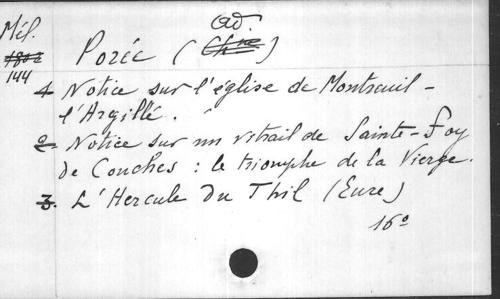 Mél.
1802
144
Porée (Ch
4 Notice sur l'église de Montreuil-
l'Argillé.
2. Notice sur un vitrail de Sainte-Foy
de Conches : le triomphe de la Vierge.
3. L'Hercule du Thil (Eure)
16°